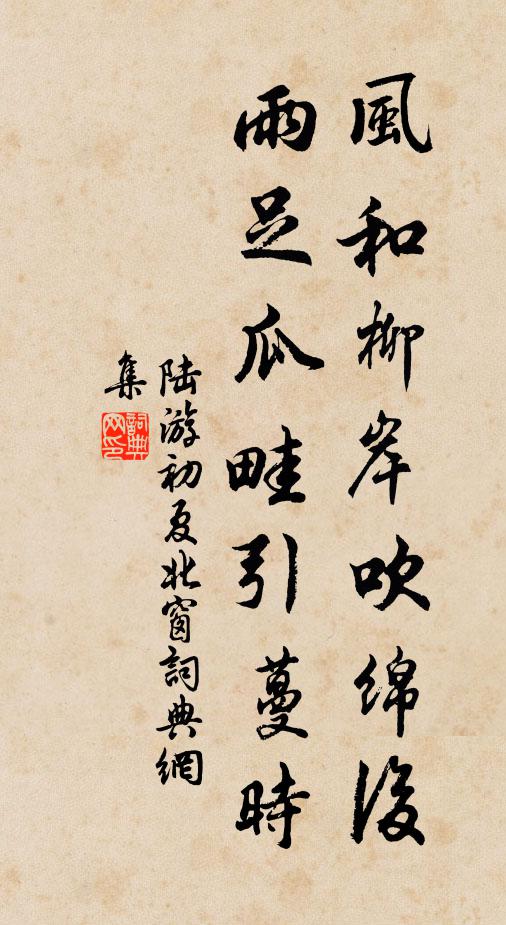 風和柳岸吹綿後
雨足瓜畦引蔓時
陆游初夏北窗詞典網
集
詞典
网印